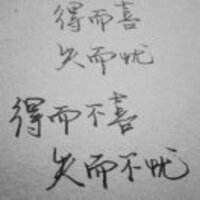 得而喜
失而忧
得而不喜
失而不忧